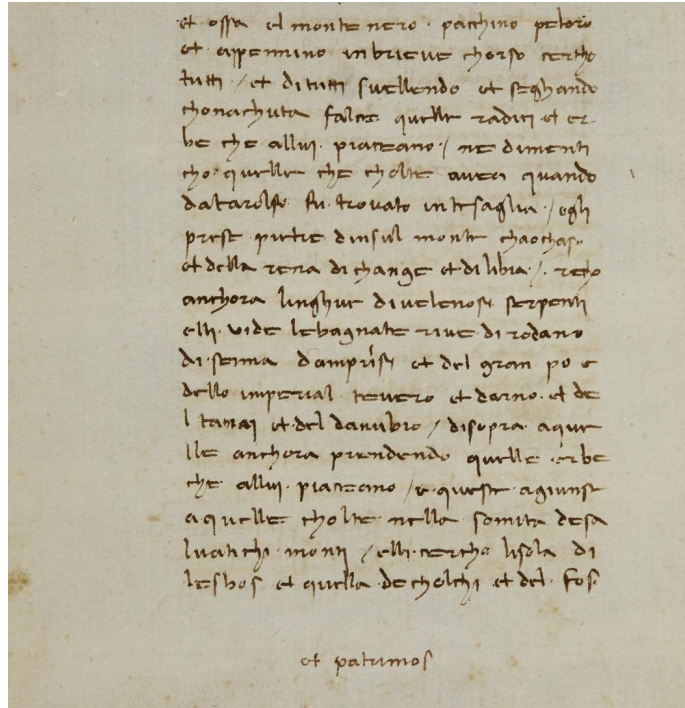 et ossa el monte nero · pacchino peloro
et appennino in brieve chorso cercho
tutti / et di tutti svellendo et seghando
chonachuta falce quelle radici et er-
be che allui · piaceano / ne dimenti
cho · quelle che cholte avea quando
da tarolfo fu · trovato in tesaglia / egli
prese pietre dinsul monte chaochaso
et della rena di change et di libia / recho
anchora linghue di velenosi serpenti
elli · vide le bagnate rive · di rodano
di · senna damprisi et del gran po e
dello imperial tevero et darno · et de
l tanai et · del danubio / disopra aque
lle anchora prendendo quelle · erbe
che · allui · piaceano / e queste · agiunse
a quelle cholte nella somita desa
luatichi · monti / elli · cercho lisola di
lesbos et quella de cholchi et del · fos ·
et patrimos